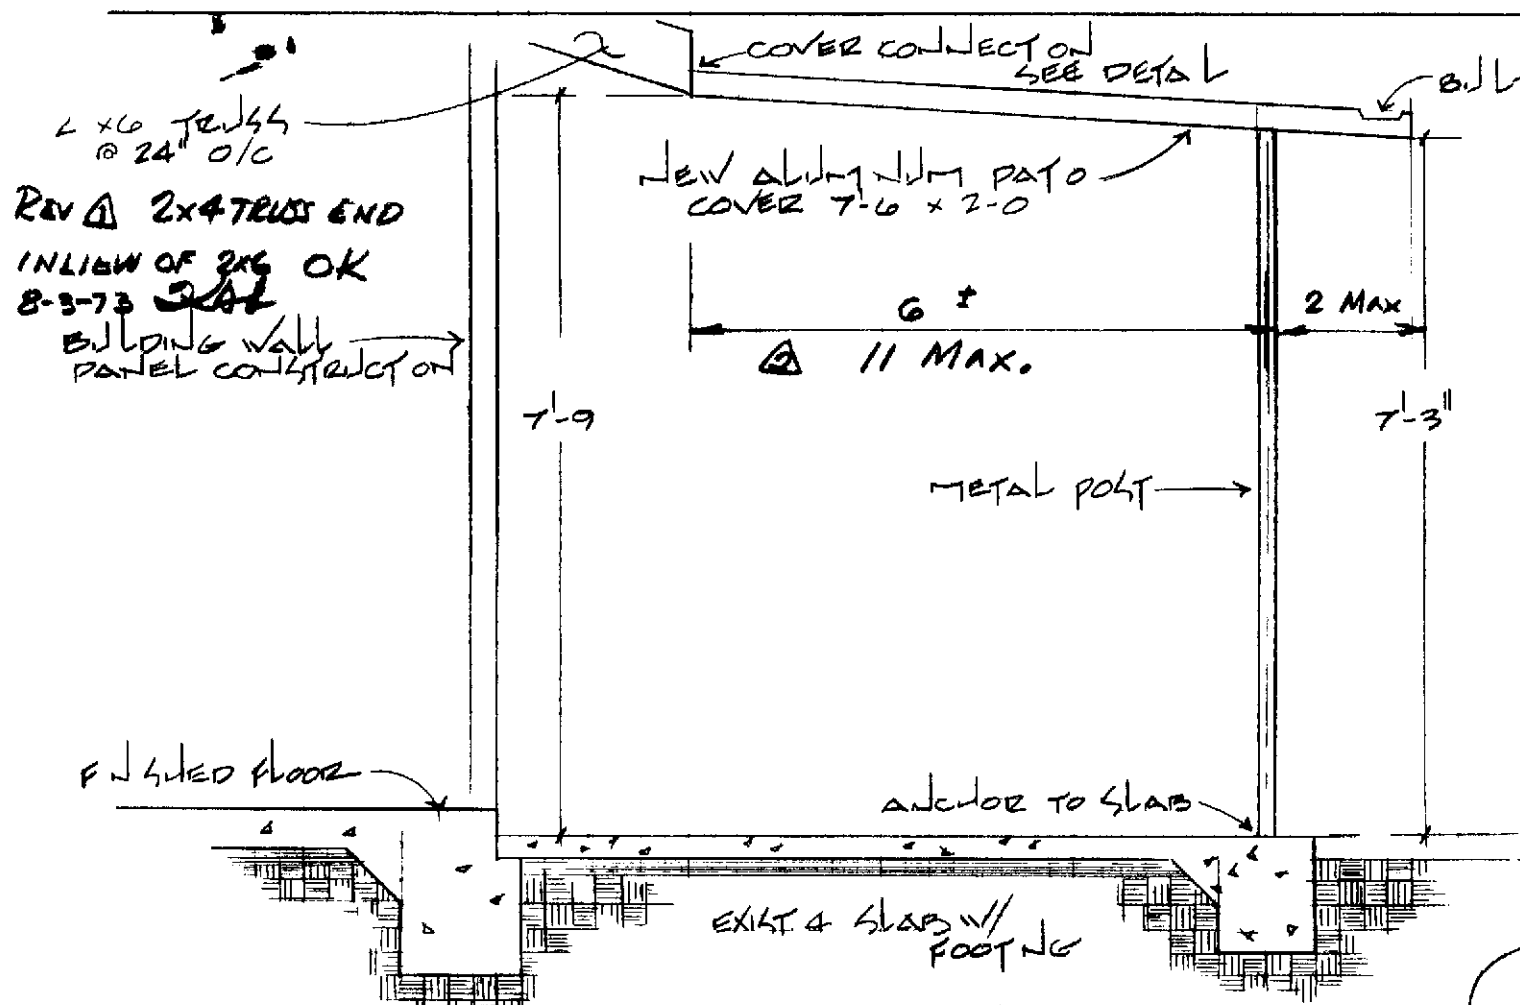 COVER CONNECTION
SEE DETAIL
2x6 TRUSS
@ 24" O/C
REV 1 2x4 TRUSS END
INLIEW OF 2x6 OK
8-3-73
BUILDING WALL
PANEL CONSTRUCTION
NEW ALUMINUM PATIO
COVER 7'-6 x 2-0
6 ±
2 MAX
2 11 MAX.
7'-9
7'-3"
METAL POST
FINISHED FLOOR
ANCHOR TO SLAB
EXIST 4 SLAB W/
FOOTING